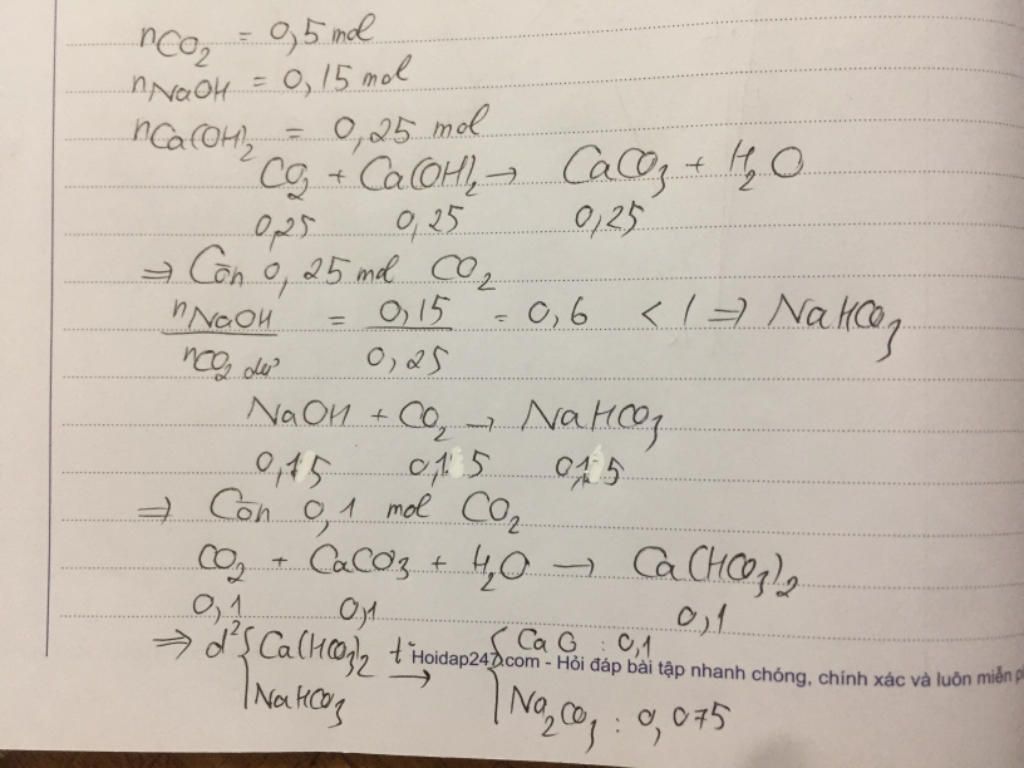 nCO₂ = 0,5 mol
nNaOH = 0,15 mol
nCa(OH)₂ = 0,25 mol
CO₂ + Ca(OH)₂ → CaCO₃ + H₂O
0,25 0,25 0,25
⇒ Còn 0,25 mol CO₂
nNaOH / nCO₂ dư = 0,15 / 0,25 = 0,6 < 1 ⇒ NaHCO₃
NaOH + CO₂ → NaHCO₃
0,15 0,15 0,15
⇒ Còn 0,1 mol CO₂
CO₂ + CaCO₃ + H₂O → Ca(HCO₃)₂
0,1 0,1 0,1
⇒ d² { Ca(HCO₃)₂ t° → { CaO : 0,1
Hoidap247.com - Hỏi đáp bài tập nhanh chóng, chính xác và luôn miễn p
NaHCO₃ Na₂CO₃ : 0,075